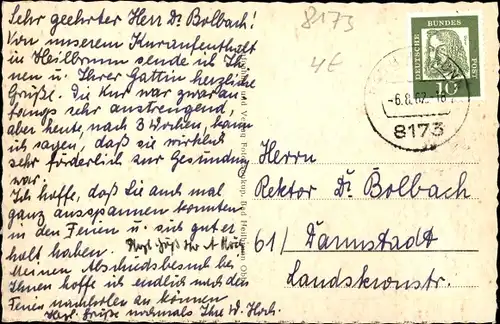 Sehr geehrter Herr Dr. Bolbach!
Von unserem Kuraufenthalt
in Heilbrunn sende ich Ih-
nen u. Ihrer Gattin herzliche
Grüße. Die Kur war zwar an-
fangs sehr anstrengend,
aber heute, nach 3 Wochen, kann
ich sagen, daß sie wirklich
sehr förderlich zur Gesundung
war.
Ich hoffe, daß Sie auch mal
ganz ausspannen konnten
in den Ferien u. sich gut er-
holt haben.
Meinen Abschiedsbesuch bei
Ihnen hoffe ich endlich nach den
Ferien nachholen zu können
Herzl. Grüße nochmals Ihre W. Hoch.
und Verlag
Bad Heilbrunn Obb.
8173
4€
DEUTSCHE BUNDESPOST
10
-6.8.62.-18
8173
Herrn
Rektor Dr. Bolbach
61/ Darmstadt
Landskronstr.